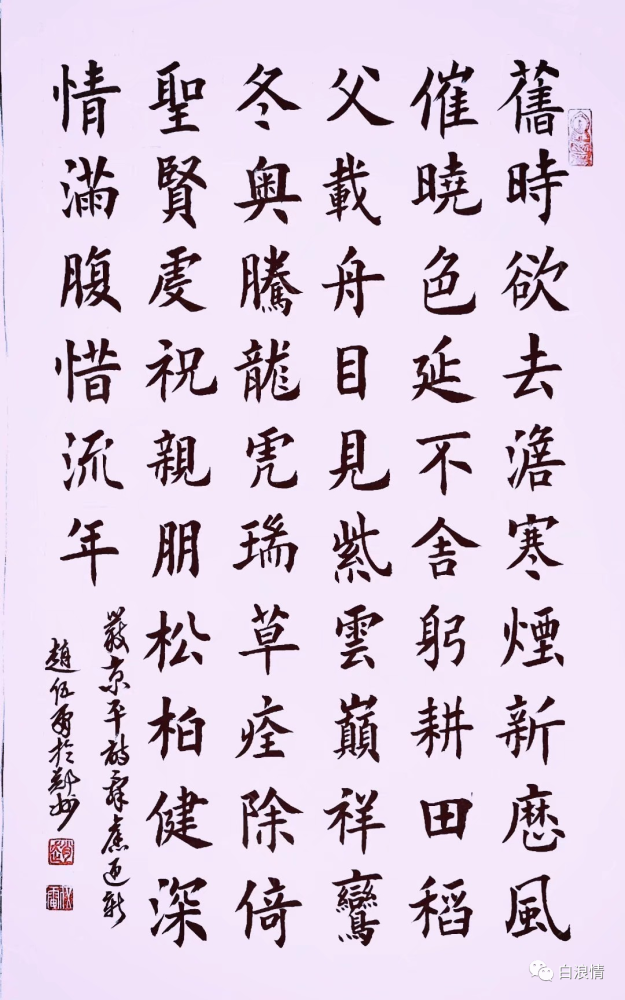 舊時欲去澹寒煙新曆風
催曉色延不舍躬耕田稻
父載舟目見紫雲巔祥鸞
冬奧騰龍虎瑞草痊除倚
聖賢虔祝親朋松柏健深
情滿腹惜流年
嚴京平詩辭舊迎新
趙伍於鄭州
白浪情